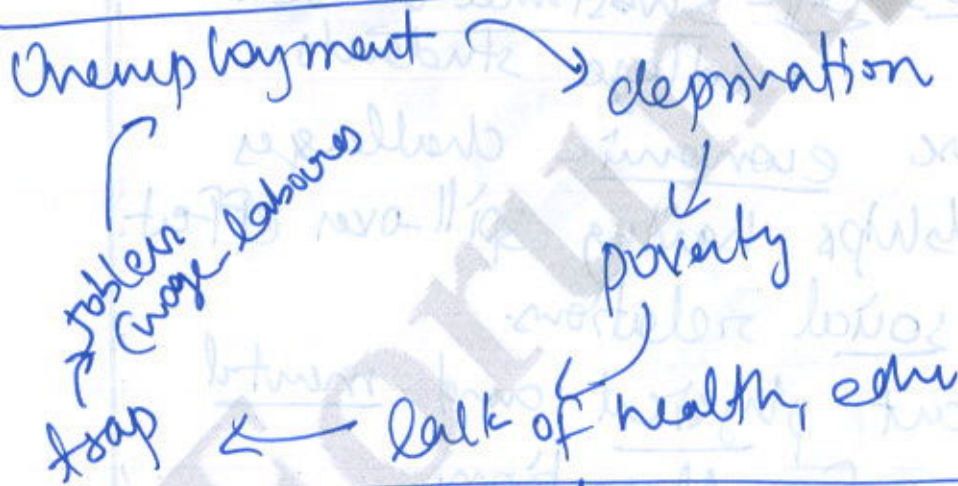 Unemployment
deprivation
poverty
lack of health, edu
trap
(wage-laboures
Forum